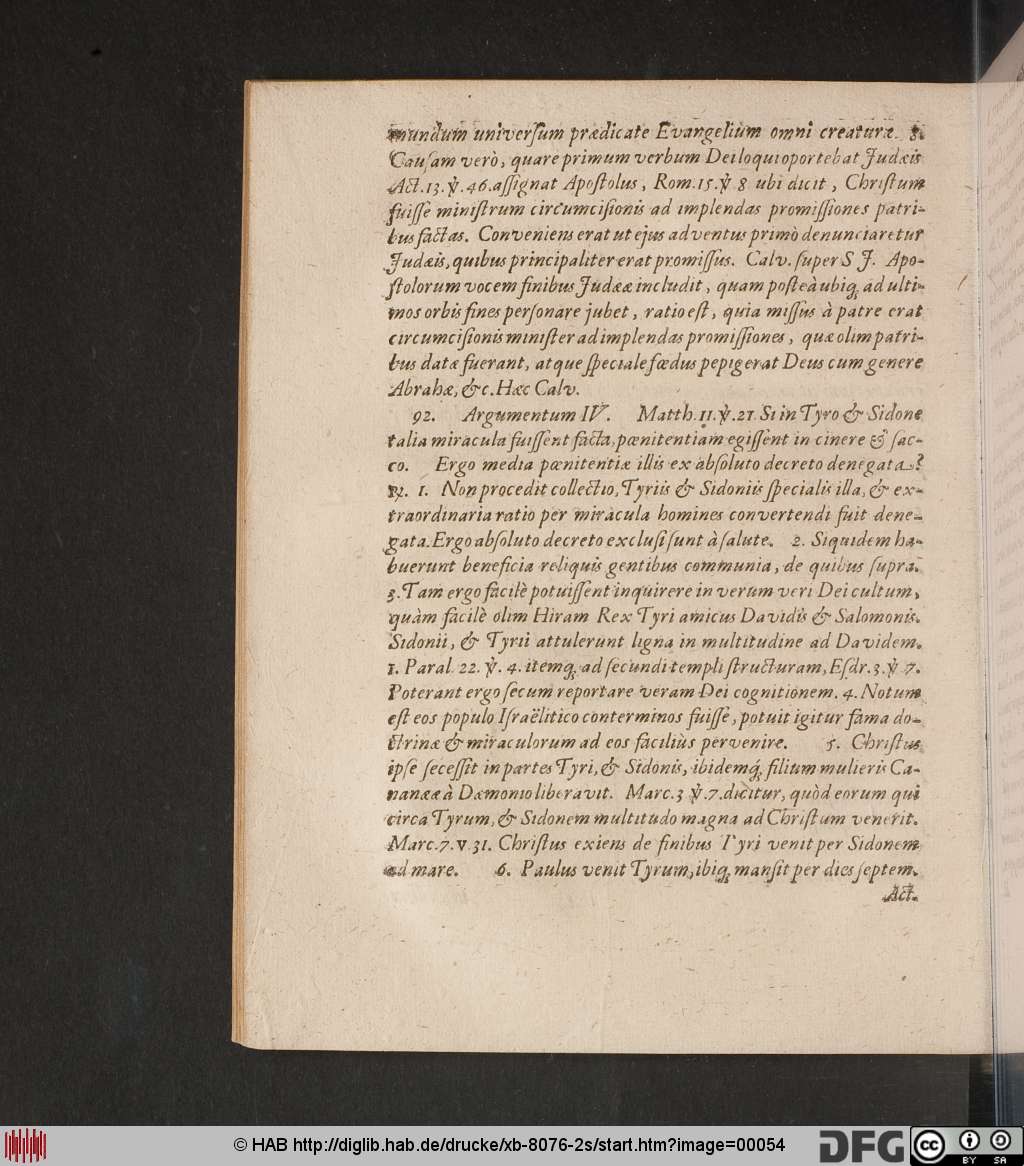 mundum univerſum prædicate Evangelium omni creaturæ. 3.
Cauſam verò, quare primum verbum Dei loqui oportebat Judæis
Act. 13. ℣. 46. aſſignat Apoſtolus, Rom. 15. ℣ 8 ubi dicit, Chriſtum
fuiſſe miniſtrum circumciſionis ad implendas promiſſiones patri-
bus factas. Conveniens erat ut ejus adventus primò denunciaretur
Judæis, quibus principaliter erat promiſſus. Calv. ſuper S J. Apo-
ſtolorum vocem finibus Judææ includit, quam poſteà ubiq; ad ulti-
mos orbis fines perſonare jubet, ratio eſt, quia miſſus à patre erat
circumciſionis miniſter ad implendas promiſſiones, quæ olim patri-
bus datæ fuerant, atque ſpeciale fœdus pepigerat Deus cum genere
Abrahæ, &c. Hæc Calv.
92. Argumentum IV. Matth. 11. ℣. 21. Si in Tyro & Sidone
talia miracula fuiſſent facta, pœnitentiam egiſſent in cinere & ſac-
co. Ergo media pœnitentiæ illis ex abſoluto decreto denegata?
℞. 1. Non procedit collectio, Tyriis & Sidoniis ſpecialis illa, & ex-
traordinaria ratio per miracula homines convertendi fuit dene-
gata. Ergo abſoluto decreto excluſi ſunt à ſalute. 2. Siquidem ha-
buerunt beneficia reliquis gentibus communia, de quibus ſupra.
3. Tam ergo facilè potuiſſent inquirere in verum veri Dei cultum,
quàm facilè olim Hiram Rex Tyri amicus Davidis & Salomonis.
Sidonii, & Tyrii attulerunt ligna in multitudine ad Davidem.
1. Paral. 22. ℣. 4. itemq; ad ſecundi templi ſtructuram, Eſdr. 3. ℣ 7.
Poterant ergo ſecum reportare veram Dei cognitionem. 4. Notum
eſt eos populo Iſraëlitico conterminos fuiſſe, potuit igitur fama do-
ctrinæ & miraculorum ad eos faciliùs pervenire. 5. Chriſtus
ipſe ſeceſſit in partes Tyri, & Sidonis, ibidemq́; filium mulieris Ca-
nanææ à Dæmonio liberavit. Marc. 3 ℣. 7. dicitur, quòd eorum qui
circa Tyrum, & Sidonem multitudo magna ad Chriſtum venerit.
Marc. 7. v 31. Chriſtus exiens de finibus Tyri venit per Sidonem
ad mare. 6. Paulus venit Tyrum, ibiq; manſit per dies ſeptem.
Act.
© HAB http://diglib.hab.de/drucke/xb-8076-2s/start.htm?image=00054
DFG
cc BY SA